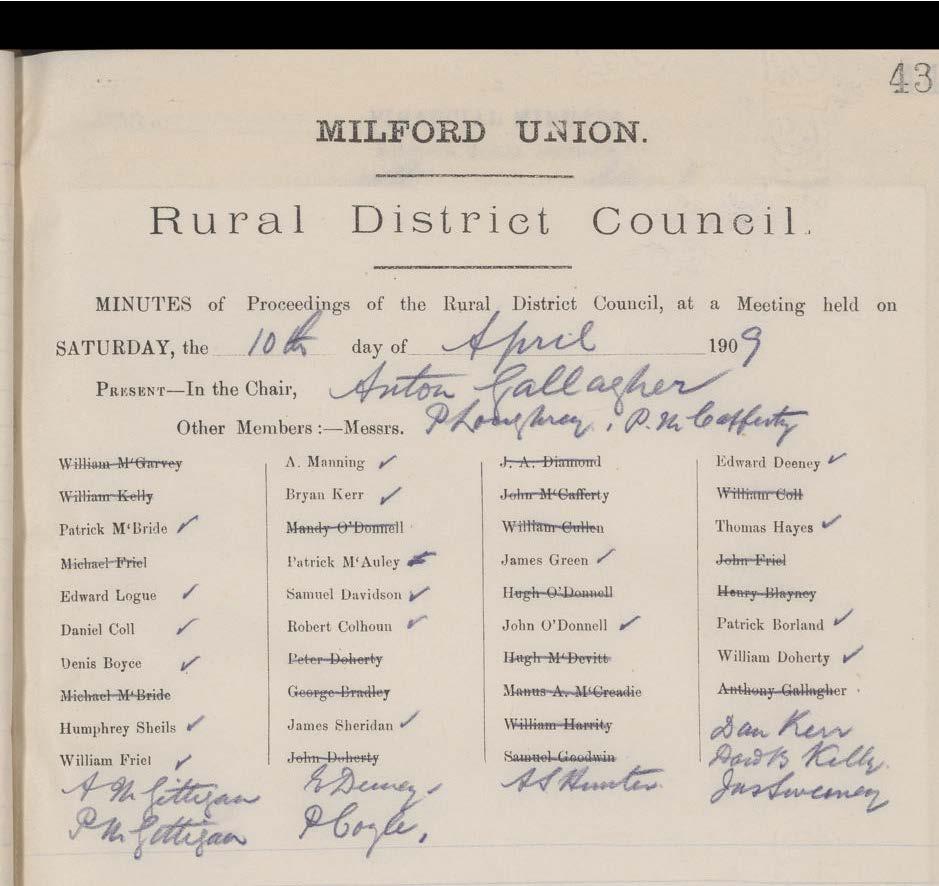 43
MILFORD UNION.
Rural District Council.
MINUTES of Proceedings of the Rural District Council, at a Meeting held on
SATURDAY, the 10th day of April 1909
PRESENT—In the Chair, Anton Gallagher
Other Members:—Messrs. P Loughrey, P. McCafferty
William M‘Garvey
William Kelly
Patrick M‘Bride ✓
Michael Friel
Edward Logue ✓
Daniel Coll ✓
Denis Boyce ✓
Michael M‘Bride
Humphrey Sheils ✓
William Friel ✓
A McGettigan
P McGettigan
A. Manning ✓
Bryan Kerr ✓
Mandy O’Donnell
Patrick M‘Auley ✓
Samuel Davidson ✓
Robert Colhoun ✓
Peter Doherty
George Bradley
James Sheridan ✓
John Doherty
P Coyle,
J. A. Diamond
John M‘Cafferty
William Cullen
James Green ✓
Hugh O’Donnell
John O’Donnell ✓
Hugh M‘Devitt
Manus A. M‘Creadie
William Harrity
Samuel Goodwin
A S Hunter
Edward Deeney ✓
William Coll
Thomas Hayes ✓
John Friel
Henry Blayney
Patrick Borland ✓
William Doherty ✓
Anthony Gallagher
Dan Kerr
Dav'd B Kelly
Jas Sweeney